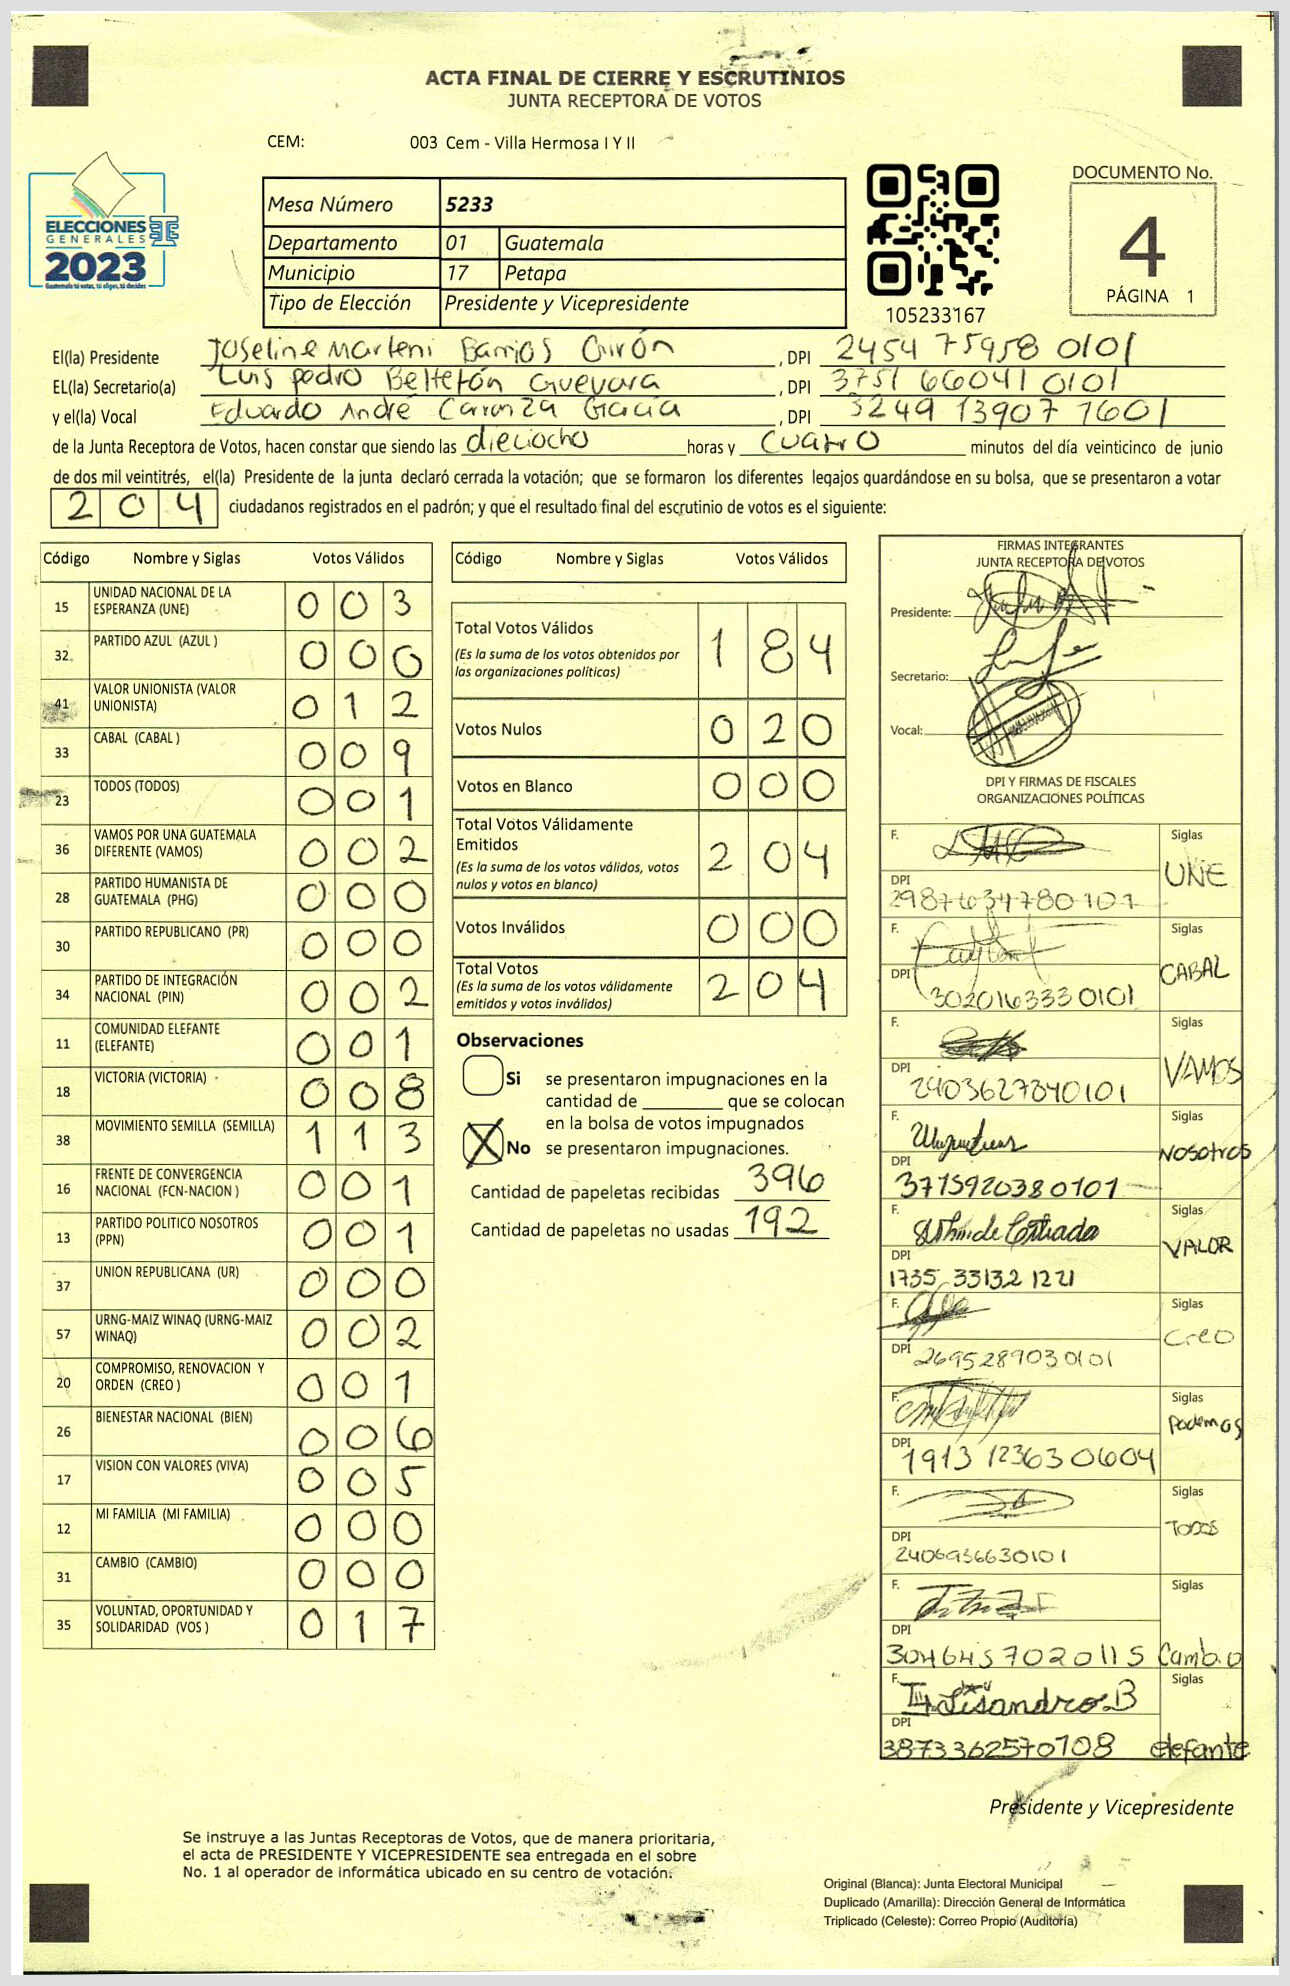 ACTA FINAL DE CIERRE Y ESCRUTINIOS
JUNTA RECEPTORA DE VOTOS
CEM: 003 Cem - Villa Hermosa I Y II
ELECCIONES
GENERALES
2023
Guatemala tú votas, tú eliges, tú decides
Mesa Número 5233
Departamento 01 Guatemala
Municipio 17 Petapa
Tipo de Elección Presidente y Vicepresidente
105233167
DOCUMENTO No.
4
PÁGINA 1
El(la) Presidente Joseline Marleni Barrios Girón , DPI 2454 75958 0101
EL(la) Secretario(a) Luis Pedro Beltetón Guevara , DPI 3751 66041 0101
y el(la) Vocal Eduardo André Carranza García , DPI 3249 13907 1601
de la Junta Receptora de Votos, hacen constar que siendo las dieciocho horas y cuatro minutos del día veinticinco de junio
de dos mil veintitrés, el(la) Presidente de la junta declaró cerrada la votación; que se formaron los diferentes legajos guardándose en su bolsa, que se presentaron a votar
204 ciudadanos registrados en el padrón; y que el resultado final del escrutinio de votos es el siguiente:
Código Nombre y Siglas Votos Válidos
15 UNIDAD NACIONAL DE LA ESPERANZA (UNE) 003
32 PARTIDO AZUL (AZUL ) 000
41 VALOR UNIONISTA (VALOR UNIONISTA) 012
33 CABAL (CABAL ) 009
23 TODOS (TODOS) 001
36 VAMOS POR UNA GUATEMALA DIFERENTE (VAMOS) 002
28 PARTIDO HUMANISTA DE GUATEMALA (PHG) 000
30 PARTIDO REPUBLICANO (PR) 000
34 PARTIDO DE INTEGRACIÓN NACIONAL (PIN) 002
11 COMUNIDAD ELEFANTE (ELEFANTE) 001
18 VICTORIA (VICTORIA) 008
38 MOVIMIENTO SEMILLA (SEMILLA) 113
16 FRENTE DE CONVERGENCIA NACIONAL (FCN-NACION ) 001
13 PARTIDO POLITICO NOSOTROS (PPN) 001
37 UNION REPUBLICANA (UR) 000
57 URNG-MAIZ WINAQ (URNG-MAIZ WINAQ) 002
20 COMPROMISO, RENOVACION Y ORDEN (CREO ) 001
26 BIENESTAR NACIONAL (BIEN) 006
17 VISION CON VALORES (VIVA) 005
12 MI FAMILIA (MI FAMILIA) 000
31 CAMBIO (CAMBIO) 000
35 VOLUNTAD, OPORTUNIDAD Y SOLIDARIDAD (VOS ) 017
Código Nombre y Siglas Votos Válidos
Total Votos Válidos 184
(Es la suma de los votos obtenidos por
las organizaciones políticas)
Votos Nulos 020
Votos en Blanco 000
Total Votos Válidamente
Emitidos 204
(Es la suma de los votos válidos, votos
nulos y votos en blanco)
Votos Inválidos 000
Total Votos 204
(Es la suma de los votos válidamente
emitidos y votos inválidos)
Observaciones
Si se presentaron impugnaciones en la
cantidad de ________ que se colocan
en la bolsa de votos impugnados
X No se presentaron impugnaciones.
Cantidad de papeletas recibidas 396
Cantidad de papeletas no usadas 192
FIRMAS INTEGRANTES
JUNTA RECEPTORA DE VOTOS
Presidente:
Secretario:
Vocal:
DPI Y FIRMAS DE FISCALES
ORGANIZACIONES POLÍTICAS
F. Siglas
UNE
DPI
2987634780101
F. Siglas
CABAL
DPI
3020163330101
F. Siglas
VAMOS
DPI
2403627840101
F. Siglas
NOSOTROS
DPI
3715920380101
F. Siglas
VALOR
DPI
1735 33132 1221
F. Siglas
Creo
DPI 2695289030101
F. Siglas
Podemos
DPI
1913 123630604
F. Siglas
TODOS
DPI
2406936630101
F. Siglas
DPI
3046457020115 Cambio
F. Lisandro B Siglas
DPI
3873362570108 elefante
Presidente y Vicepresidente
Se instruye a las Juntas Receptoras de Votos, que de manera prioritaria,
el acta de PRESIDENTE Y VICEPRESIDENTE sea entregada en el sobre
No. 1 al operador de informática ubicado en su centro de votación.
Original (Blanca): Junta Electoral Municipal
Duplicado (Amarilla): Dirección General de Informática
Triplicado (Celeste): Correo Propio (Auditoría)